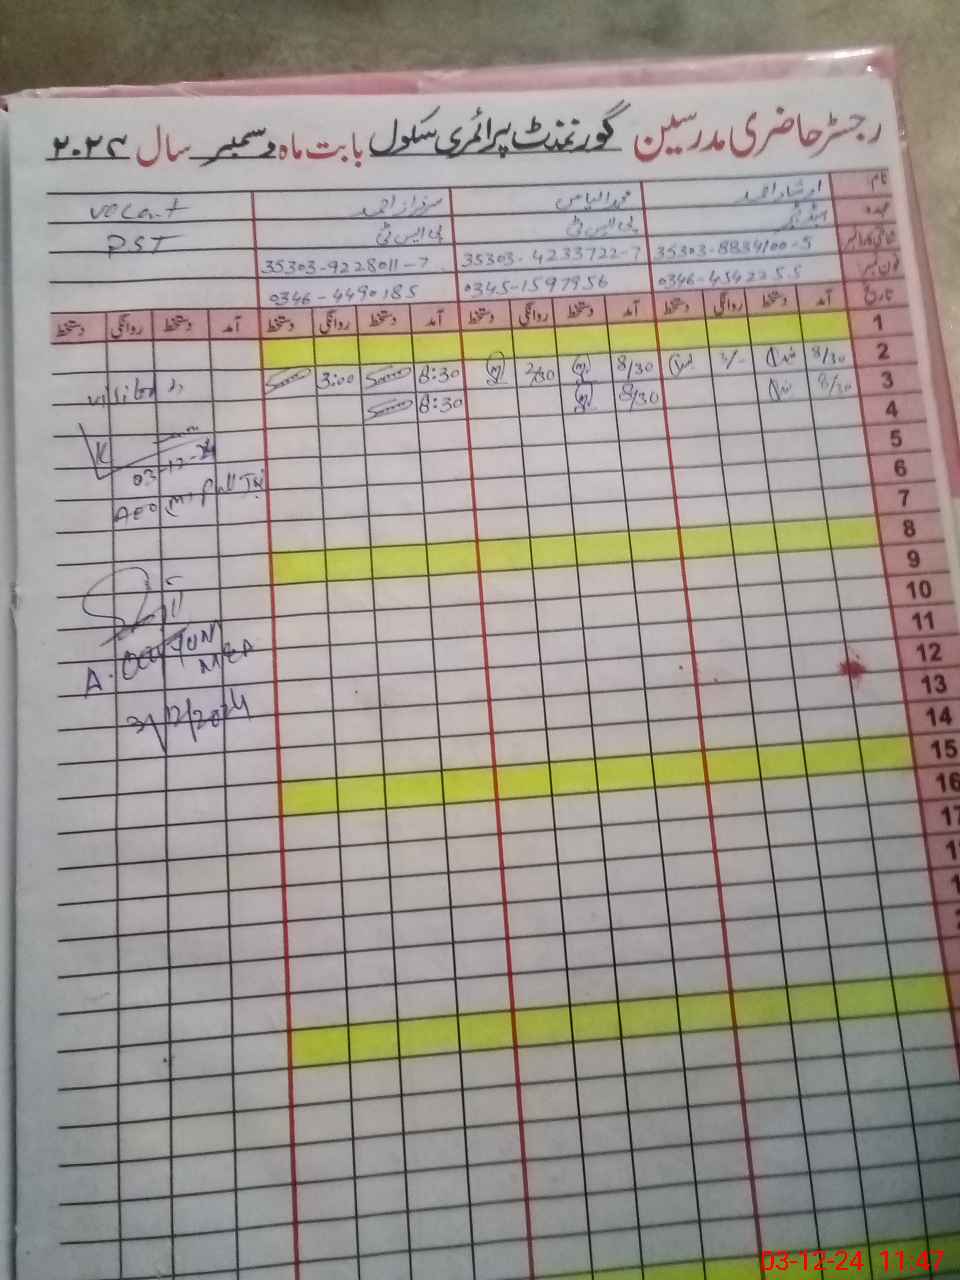 رجسٹر حاضری مدرسین گورنمنٹ پرائمری سکول بابت ماہ دسمبر سال ۲۰۲۴
نام ارشاد احمد محمد الیاس سرفراز احمد Vecant
عہدہ ہیڈ ٹیچر پی ایس ٹی پی ایس ٹی PST
شناختی کارڈ نمبر 35303-8834100-5 35303-4233722-7 35303-9228011-7
فون نمبر 0346-4542255 0345-1597956 0346-4490185
تاریخ آمد دستخط روانگی دستخط آمد دستخط روانگی دستخط آمد دستخط روانگی دستخط آمد دستخط روانگی دستخط
1
2 8/30 3/- 8/30 2/30 8:30 3:00
3 8/30 8/30 8:30
visited
4
5
03-12-24
6
AEO
7
8
9
10
11
12
A.
MEA
13
3/12/2024
14
15
16
17
03-12-24 11:47